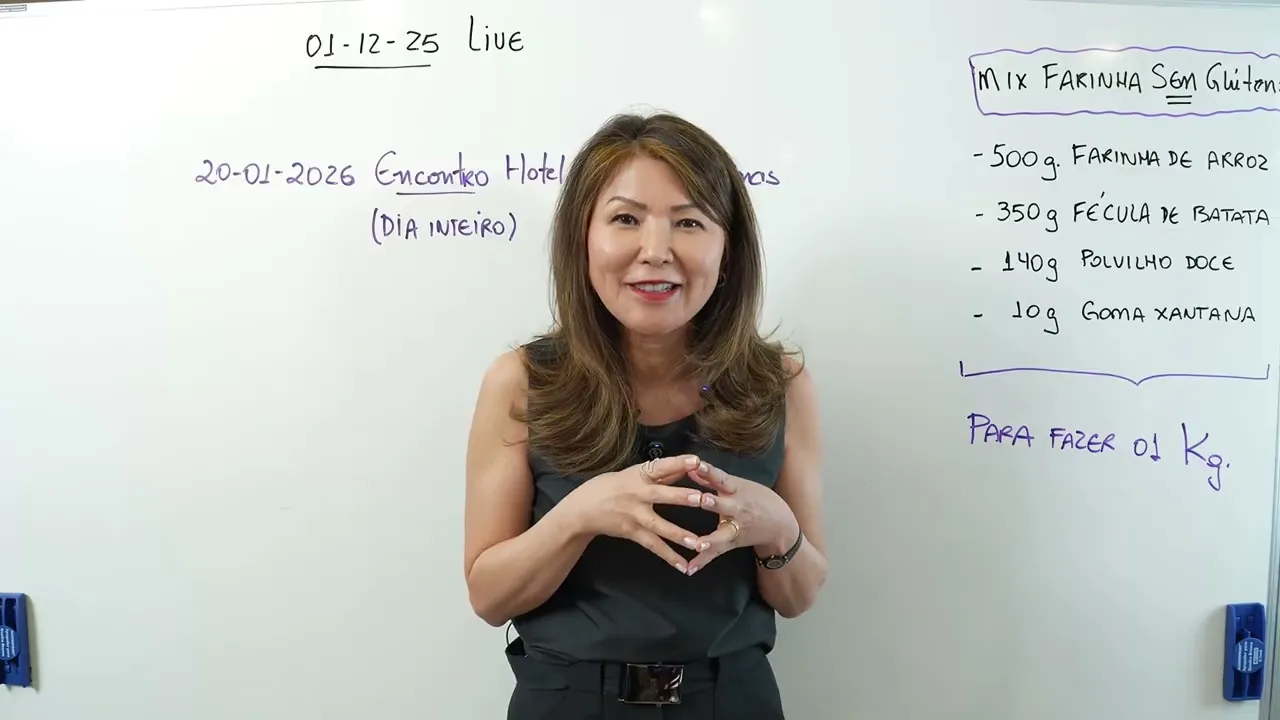 01-12-25 Live
20-01-2026 Encontro Hotel
(DIA INTEIRO)
MIX FARINHA SEM Glúten
- 500g. FARINHA DE ARROZ
- 350g FÉCULA DE BATATA
- 140g POLVILHO DOCE
- 10g GOMA XANTANA
PARA FAZER 01 Kg.